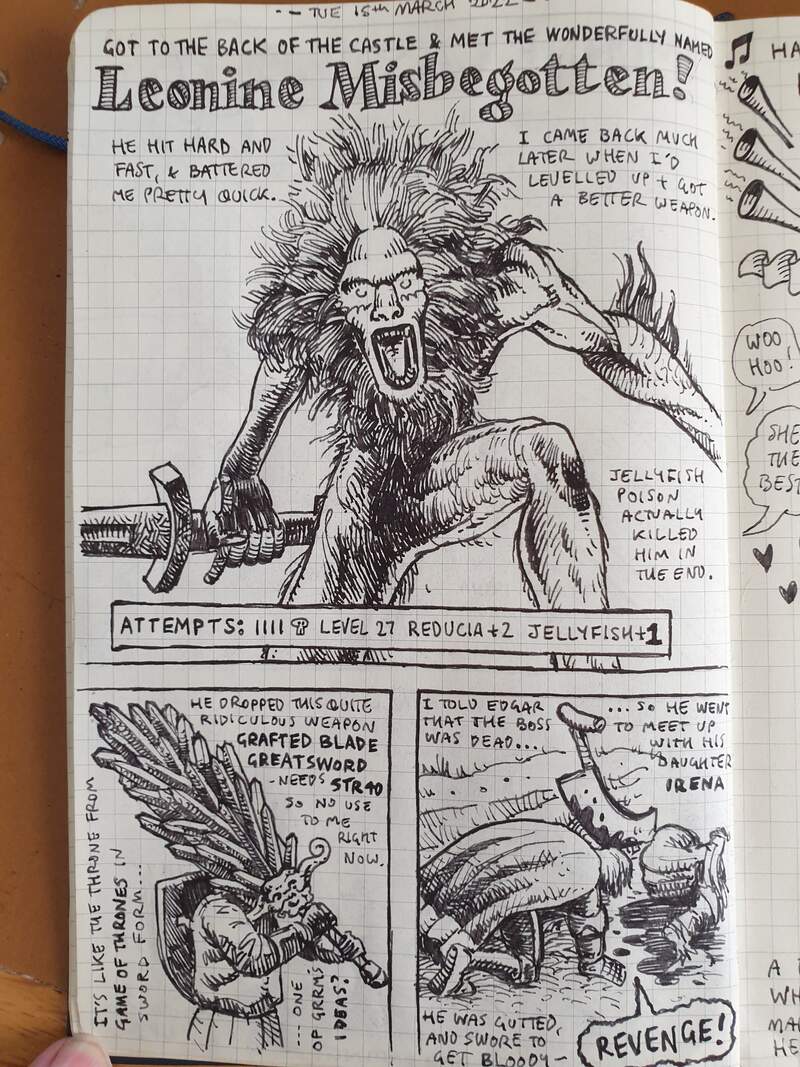 -- TUE 15th MARCH 2022 -
GOT TO THE BACK OF THE CASTLE & MET THE WONDERFULLY NAMED
Leonine Misbegotten!
HE HIT HARD AND
FAST, & BATTERED
ME PRETTY QUICK.
I CAME BACK MUCH
LATER WHEN I'D
LEVELLED UP + GOT
A BETTER WEAPON.
JELLYFISH
POISON
ACTUALLY
KILLED
HIM IN
THE END.
ATTEMPTS: IIII LEVEL 27 REDUCIA+2 JELLYFISH+1
HE DROPPED THIS QUITE
RIDICULOUS WEAPON
GRAFTED BLADE
GREATSWORD
-NEEDS STR40
SO NO USE
TO ME
RIGHT
NOW.
IT'S LIKE THE THRONE FROM
GAME OF THRONES IN
SWORD FORM...
... ONE
OF GRRM'S
IDEAS?
I TOLD EDGAR
THAT THE BOSS
WAS DEAD...
...SO HE WENT
TO MEET UP
WITH HIS
DAUGHTER
IRENA
HE WAS GUTTED,
AND SWORE TO
GET BLOODY-
REVENGE!
HA
WOO
HOO!
SHE
THE
BEST
A
WH
MA
HE